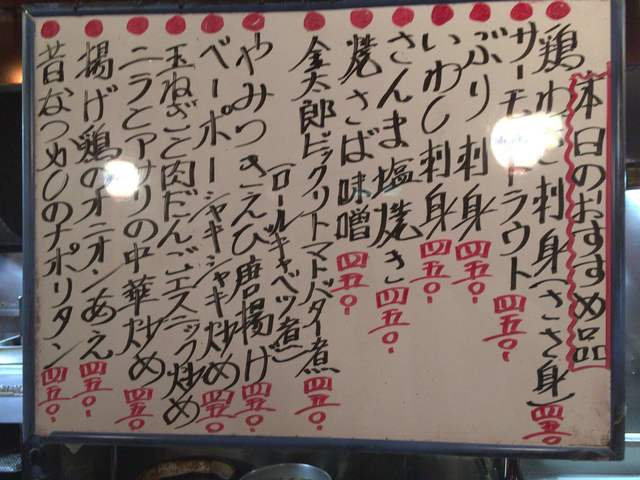 本日のおすすめ品
鶏わさ刺身(ささ身)四五〇
サーモントラウト四五〇
ぶり刺身四五〇
いわし刺身四五〇
さんま塩焼き四五〇
焼さば味噌四五〇
金太郎ビックリトマトバター煮四五〇
(ロールキャベツ煮)
やみつきえび唐揚げ四五〇
ベーポーシャキシャキ炒め四五〇
玉ねぎと肉だんごエスニック炒め
ニラとアサリの中華炒め四五〇
揚げ鶏のオニオンあえ四五〇
昔なつかしのナポリタン四五〇